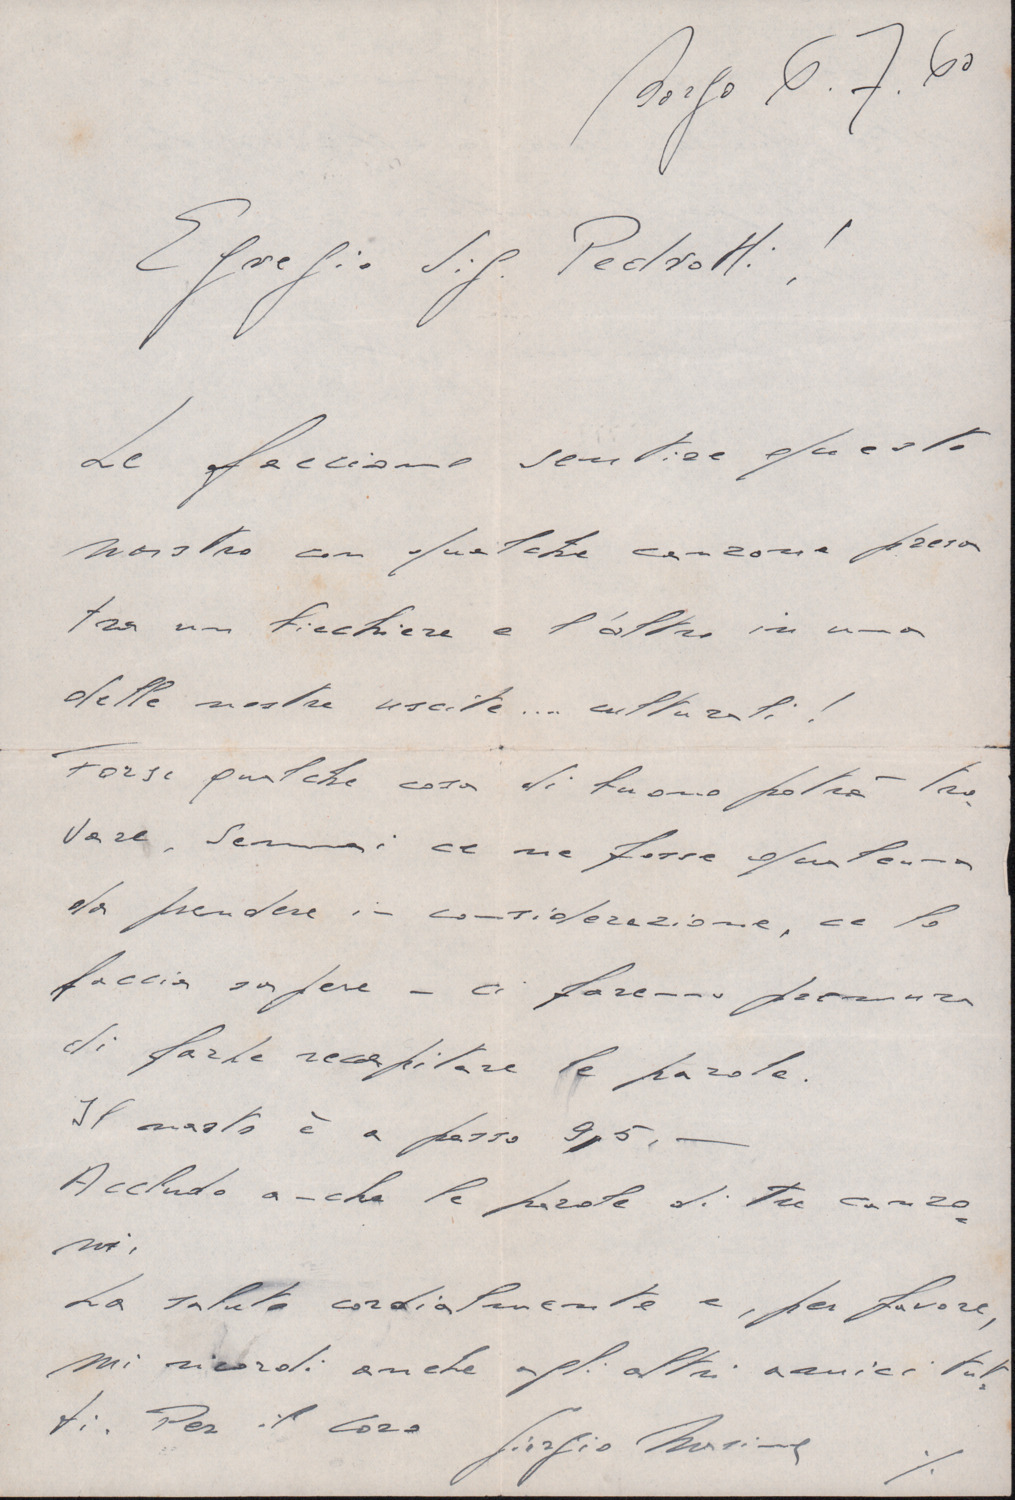 Borgo 6.7.60
Egregio Sig. Pedrotti,!
Le facciamo sentire questo
nastro con qualche canzone presa
tra un bicchiere e l'altro in una
delle nostre uscite... culturali!
Forse qualche cosa di buono potrà tro-
vare, semmai ce ne fosse qualcuna
da prendere in considerazione, ce lo
faccia sapere - ci faremo premura
di farle recapitare le parole.
Il nasto è a passo 9,5.—
Accludo anche le parole di tre canzo=
ni.
La saluto cordialmente e, per favore,
mi ricordi anche agli altri amici tut-
ti. Per il coro Giorgio
./.